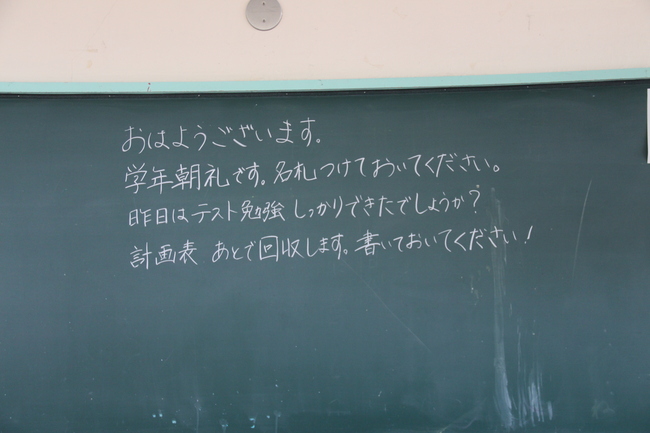 おはようございます。
学年朝礼です。名札つけておいてください。
昨日はテスト勉強しっかりできたでしょうか?
計画表 あとで回収します。書いておいてください!